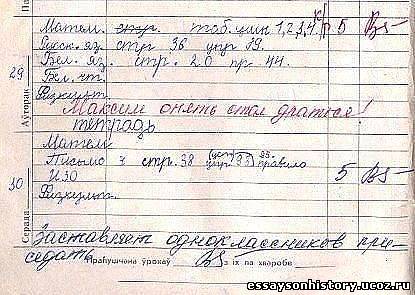 Матем. табл. умн. 1,2,3,4 5
Русск. яз. стр 36 упр 19.
29 Бел. яз. стр. 20 пр 44.
Аўторак Бел. чт.
Физкульт.
Максим опять стал драться!
тетрадь
Матем
Письмо стр. 38 упр 33 правило
ИЗО 5
30 Физкульт.
Серада
Заставляет одноклассников при-
седать
Прапушчана ўрокаў з іх па хваробе
essaysonhistory.ucoz.ru